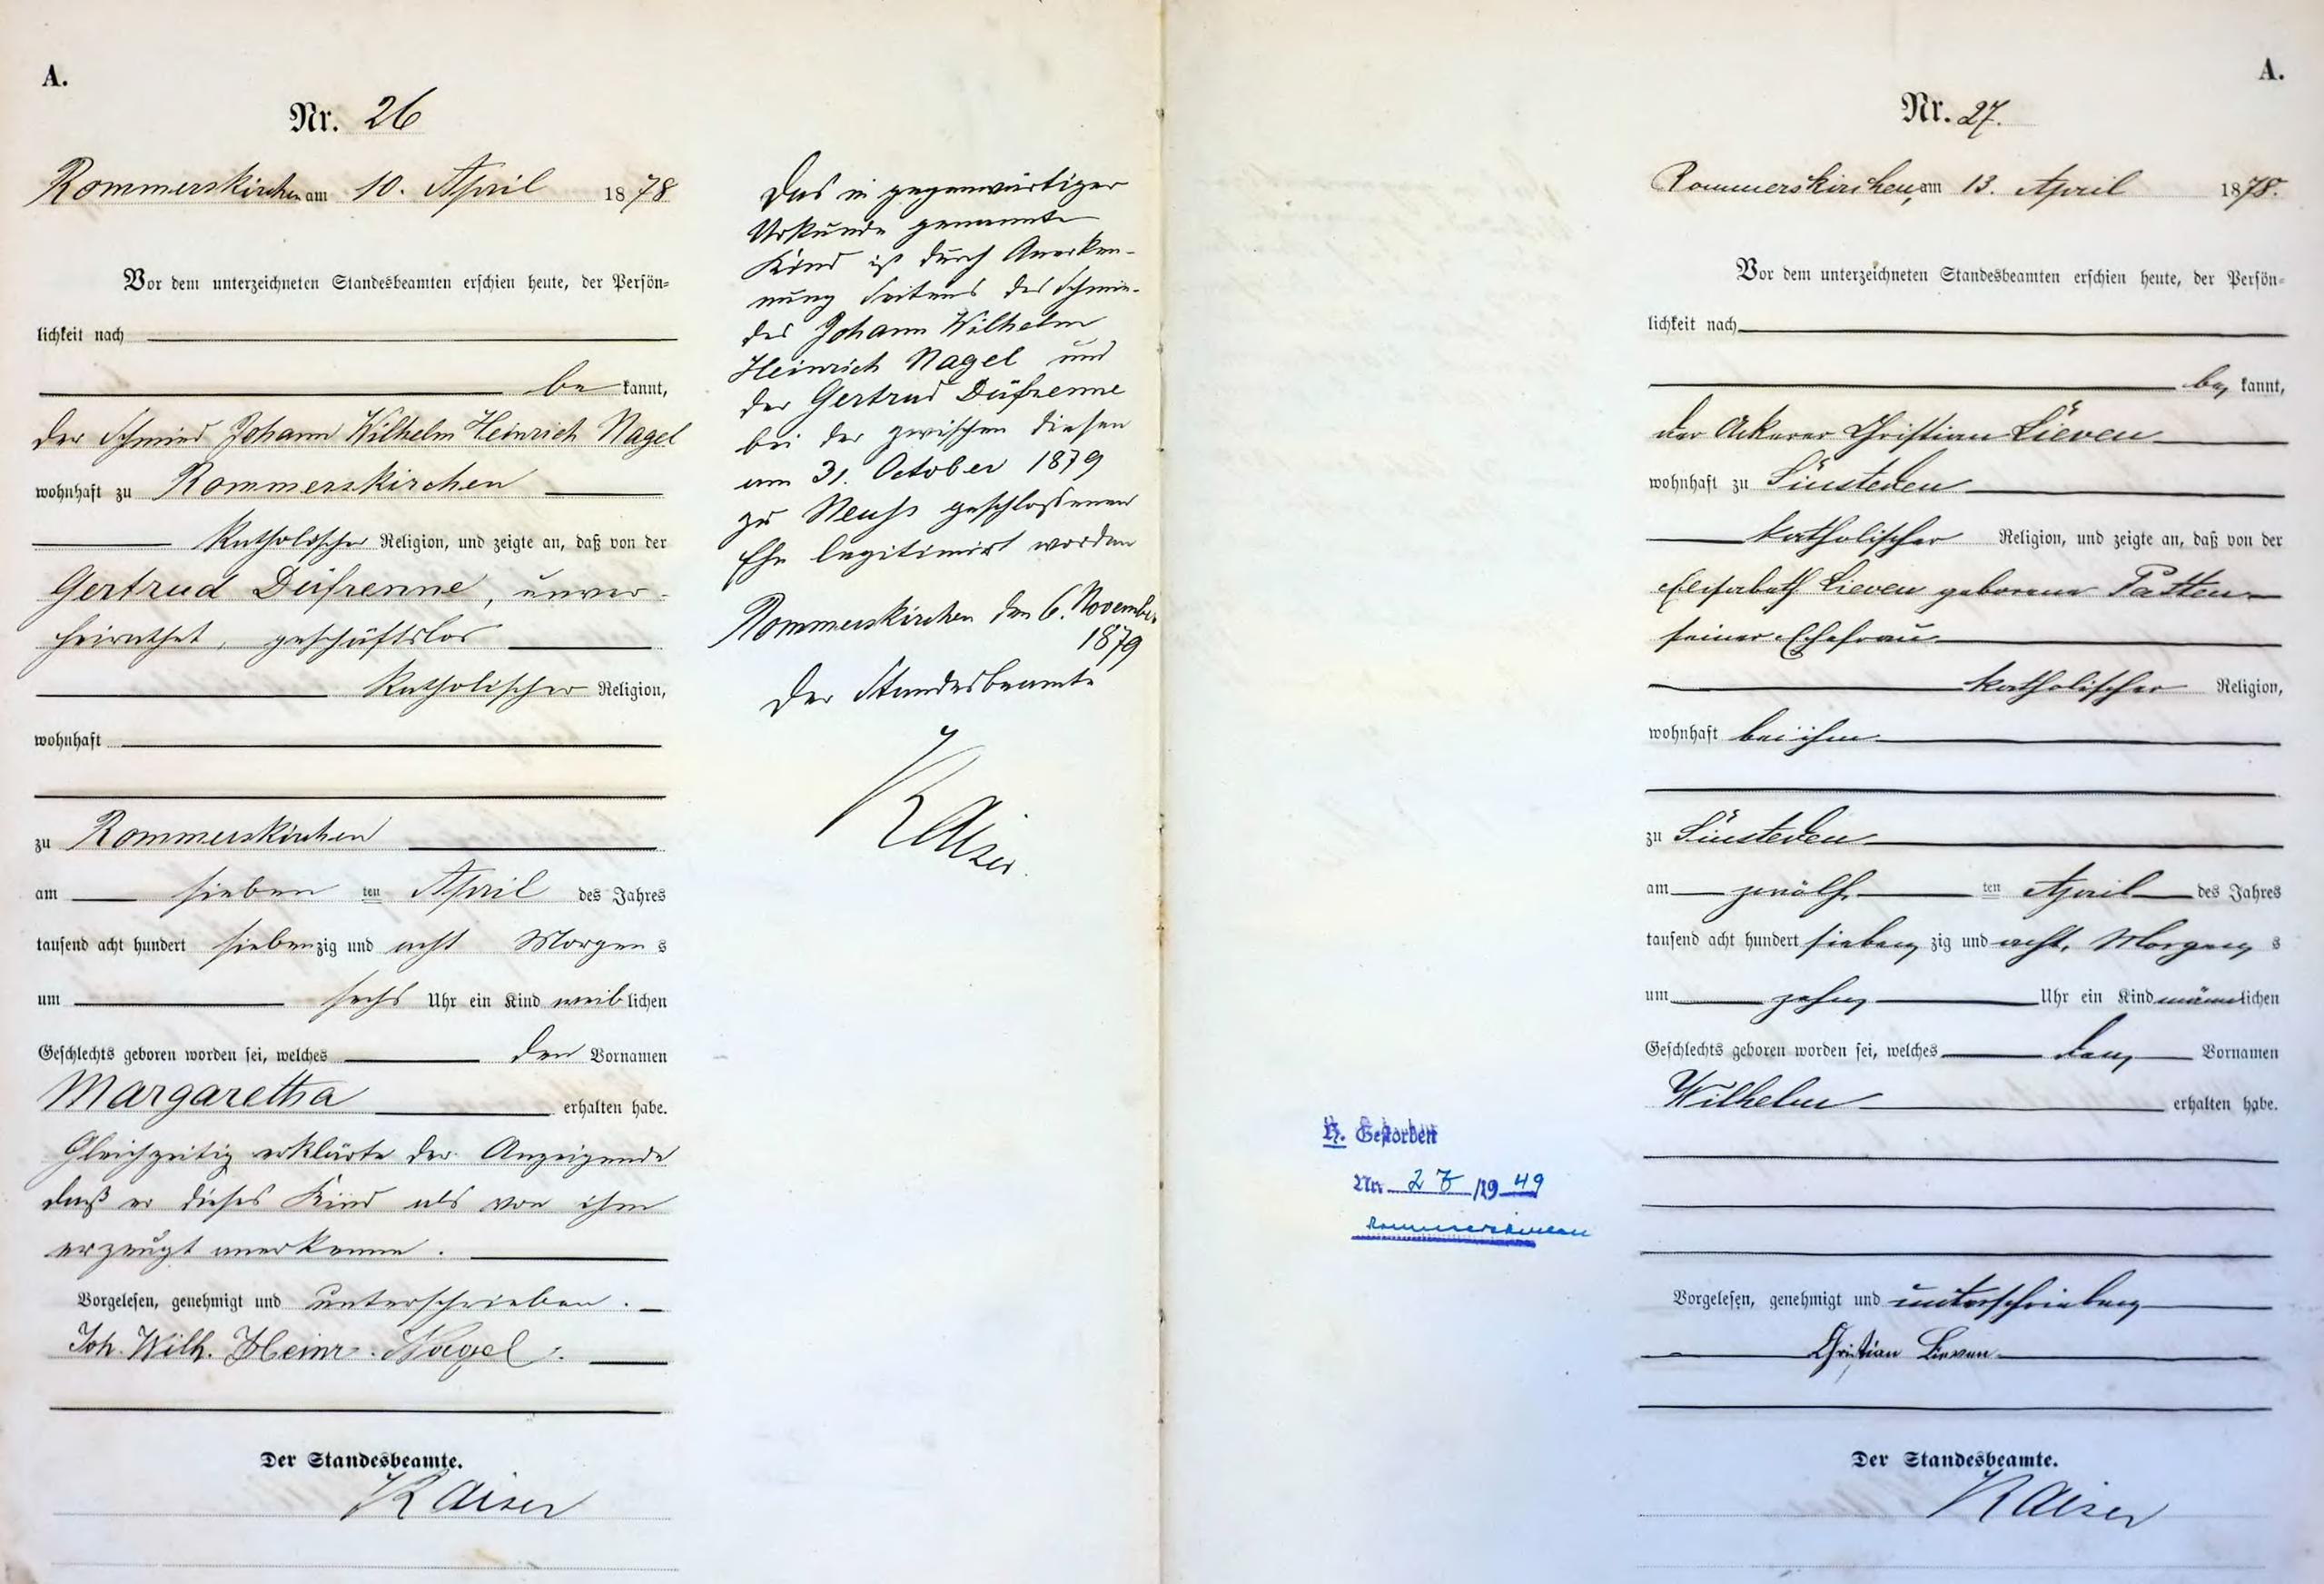 A.
Nr. 26
Rommerskirchen am 10. April 1878
Vor dem unterzeichneten Standesbeamten erschien heute, der Persön-
lichkeit nach
be kannt,
der Schmied Johann Wilhelm Heinrich Nagel
wohnhaft zu Rommerskirchen
katholischer Religion, und zeigte an, daß von der
Gertrud Düfrenne, unver-
heirathet, geschäftslos
katholischer Religion,
wohnhaft
zu Rommerskirchen
am sieben ten April des Jahres
tausend acht hundert siebenzig und acht Morgens
um sechs Uhr ein Kind weiblichen
Geschlechts geboren worden sei, welches den Vornamen
Margaretha erhalten habe.
Gleichzeitig erklärte der Anzeigende
daß er dieses Kind als von ihm
erzeugt anerkenne.
Vorgelesen, genehmigt und unterschrieben.
Joh. Wilh. Heinr. Nagel.
Der Standesbeamte.
Kaiser
Das in gegenwärtiger
Urkunde genannte
Kind ist durch Anerken-
nung Seitens des Schmie-
des Johann Wilhelm
Heinrich Nagel und
der Gertrud Düfrenne
bei der zwischen diesen
am 31. October 1879
zu Neuß geschlossenen
Ehe legitimirt worden
Rommerskirchen den 6. November
1879
Der Standesbeamte
Kaiser.
A.
Nr. 27.
Rommerskirchen, am 13. April 1878.
Vor dem unterzeichneten Standesbeamten erschien heute, der Persön-
lichkeit nach
be kannt,
der Ackerer Christian Lieven
wohnhaft zu Sinsteden
katholischer Religion, und zeigte an, daß von der
Elisabeth Lieven geborene Patten
seiner Ehefrau
katholischer Religion,
wohnhaft bei ihm
zu Sinsteden
am zwölf ten April des Jahres
tausend acht hundert sieben zig und acht, Morgens
um zehn Uhr ein Kind männlichen
Geschlechts geboren worden sei, welches den Vornamen
Wilhelm erhalten habe.
Vorgelesen, genehmigt und unterschrieben
Christian Lieven
Der Standesbeamte.
Kaiser
Gestorben
Nr. /19 49
Rommerskirchen